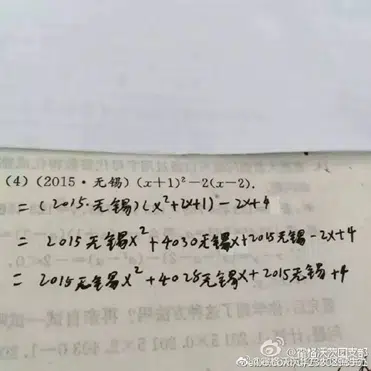 (4) (2015·无锡) (x+1)²-2(x-2).
= (2015·无锡)(x²+2x+1) -2x+4
= 2015无锡x²+4030无锡x+2015无锡-2x+4
= 2015无锡x²+4028无锡x+2015无锡+4